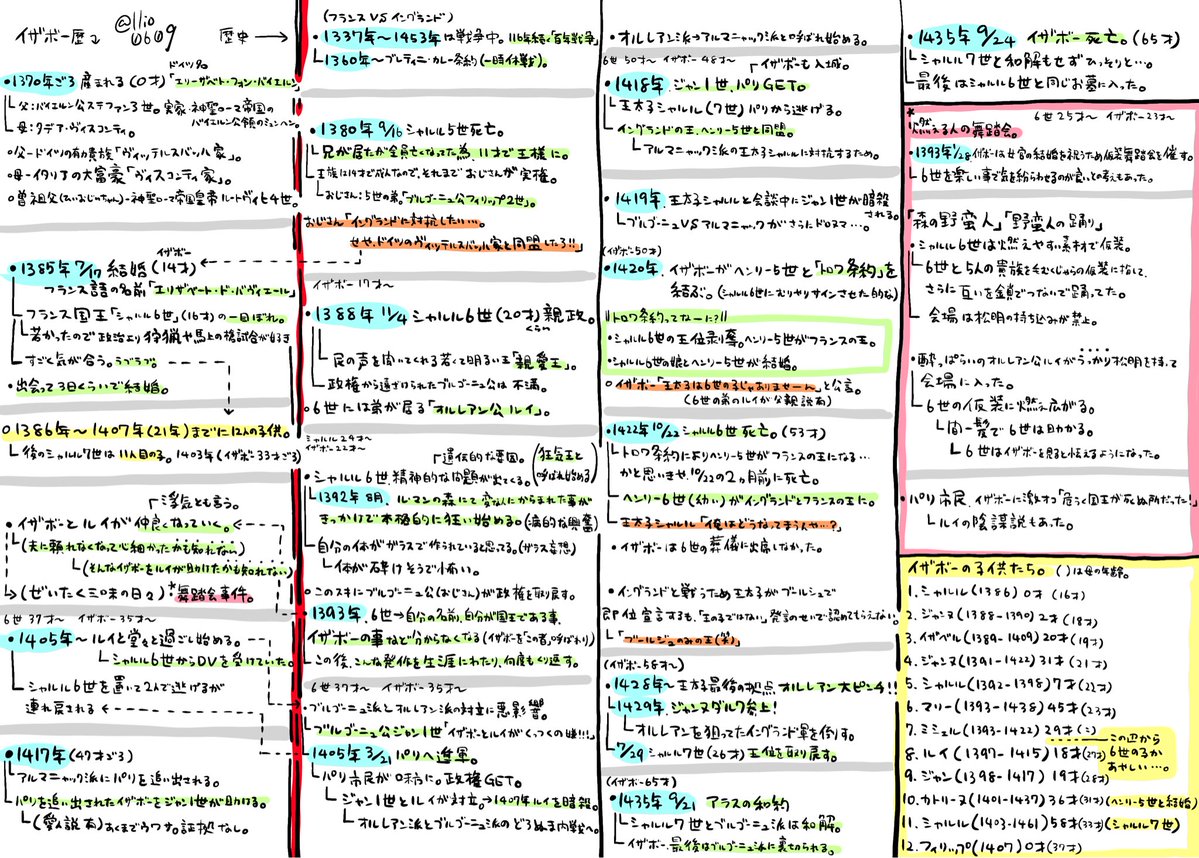 イザボー歴↓
@llio
0609
歴史→
•1370年ごろ 産まれる(0才)「エリーザベト・フォン・バイエルン」
ドイツ名
父:バイエルン公ステファン3世。実家:神聖ローマ帝国の
バイエルン公領のミュンヘン。
母:タデア・ヴィスコンティ。
○父-ドイツの有力貴族「ヴィッテルスバッハ家」。
○母-イタリアの大富豪「ヴィスコンティ家」。
○曽祖父(ひいおじいちゃん)-神聖ローマ帝国皇帝 ルートヴィヒ4世。
イザボー
•1385年7/17 結婚(14才)
フランス語の名前「エリザベート・ド・バヴィエール」
フランス国王「シャルル6世」(16才)の一目ぼれ。
若かったので政治より狩猟や馬上の槍試合が好き
すごく気が合う。ラブラブ。
•出会って3日くらいで結婚。
○1386年〜1407年(21年)までに12人の子供。
後のシャルル7世は11人目の子。1403年(イザボー33才ごろ)
「浮気とも言う。
•イザボーとルイが仲良くなっていく。
(夫に頼れなくなって心細かったかも知れない)
(そんなイザボーをルイが助けたかも知れない)
→(ぜいたく三昧の日々)*舞踏会事件。
6世37才〜 イザボー35才〜
•1405年〜ルイと堂々と過ごし始める。
シャルル6世からDVを受けていた。
シャルル6世を置いて2人で逃げるが
連れ戻される
•1417年(47才ごろ)
アルマニャック派にパリを追い出される。
パリを追い出されたイザボーをジャン1世が助ける。
(愛人説有)あくまでウワサ。証拠なし。
(フランス VS イングランド)
•1337年〜1453年は戦争中。116年続く「百年戦争」
1360年〜ブレティニー・カレー条約(一時休戦)。
•1380年9/16 シャルル5世死亡。
兄が居たが全員亡くなってた為、11才で王様に。
王族は14才で成人なので、それまでおじさんが実権。
おじさん:5世の弟。「ブルゴーニュ公フィリップ2世」。
おじさん「イングランドに対抗したい…
せや、ドイツのヴィッテルスバッハ家と同盟したろ!!」
イザボー17才〜
•1388年11/4 シャルル6世(20才)親政。
くらい
民の声を聞いてくれる若くて明るい王「親愛王」。
政権から遠ざけられたブルゴーニュ公は不満。
○6世には弟が居る「オルレアン公ルイ」。
シャルル24才〜
イザボー22才〜
「遺伝的な要因。
(狂気王と呼ばれ始める)
•シャルル6世、精神的な問題が出てくる。
1392年8月、ルマンの森にて変な人にからまれた事が
きっかけで本格的に狂い始める。(病的な興奮)
自分の体がガラスで作られていると思ってる。(ガラス妄想)
体が砕けそうで怖い。
•このスキにブルゴーニュ公(おじさん)が政権を取戻す。
•1393年 6世→自分の名前、自分が国王である事、
イザボーの事など分からなくなる(イザボーを「この者」呼ばわり)
この後、こんな発作を生涯にわたり、何度もくり返す。
6世37才〜 イザボー35才〜
•ブルゴーニュ派とオルレアン派の対立に悪影響。
「ブルゴーニュ公ジャン1世「イザボーとルイがくっつくの嫌!!!」
1405年3/21 パリへ進軍。
パリ市民が味方に。政権GET。
ジャン1世とルイが対立。→1407年ルイを暗殺。
オルレアン派とブルゴーニュ派のどろぬま内戦へ。
•オルレアン派→アルマニャック派と呼ばれ始める。
6世50才〜 イザボー48才〜
「イザボーも入城。
•1418年 ジャン1世、パリGET。
王太子シャルル(7世)パリから逃げる。
イングランドの王、ヘンリー5世と同盟。
アルマニャック派の王太子シャルルに対抗するため。
•1419年 王太子シャルルと会談中にジャン1世が暗殺
される。
ブルゴーニュVSアルマニャックがさらにドロヌマ…。
(イザボー50才)
•1420年、イザボーがヘンリー5世と「トロワ条約」を
結ぶ。(シャルル6世にむりやりサインさせた的な)
"トロワ条約ってなーに?"
•シャルル6世の王位剥奪。ヘンリー5世がフランスの王。
•シャルル6世の娘とヘンリー5世が結婚。
○イザボー「王太子は6世の子じゃありませーん」と公言。
(6世の弟のルイが父親説有)
•1422年10/22 シャルル6世死亡。(53才)
トロワ条約によりヘンリー5世がフランスの王になる…
かと思いきや、10/22の2ヶ月前に死亡。
ヘンリー6世(幼い)がイングランドとフランスの王に。
王太子シャルル「俺はどうなってまうんや…?」
•イザボーは6世の葬儀に出席しなかった。
•イングランドと戦うため王太子がブールジュで
即位宣言するも、「王の子ではない」発言のせいで認めてもらえない。
「ブールジュのみの王(笑)」
(イザボー58才〜)
•1428年〜王太子最後の拠点 オルレアン大ピンチ!!
1429年、ジャンヌダルク参上!
オルレアンを狙ったイングランド軍を倒す。
7/29 シャルル7世(26才)王位を取り戻す。
(イザボー65才)
•1435年9/21 アラスの和約
シャルル7世とブルゴーニュ派は和解。
イザボー、最後はブルゴーニュ派に裏切られる。
•1435年9/24 イザボー死亡。(65才)
シャルル7世と和解もせずひっそりと…。
最後はシャルル6世と同じお墓に入った。
*
6世25才〜 イザボー23才〜
燃える人の舞踏会。
•1393年1/28 イザボーは女官の結婚を祝うため仮装舞踏会を催す。
6世を楽しい事で気を紛らわせるのが良いとの考えもあった。
「森の野蛮人」「野蛮人の踊り」
•シャルル6世は燃えやすい素材で仮装。
6世と5人の貴族を毛むくじゃらの仮装に扮して、
さらに互いを鎖でつないで踊ってた。
会場は松明の持ち込みが禁止。
•酔っぱらいのオルレアン公ルイがうっかり松明を持って
会場に入った。
6世の仮装に燃え広がる。
間一髪で6世は助かる。
6世はイザボーを見ると怯えるようになった。
•パリ市民、イザボーに激オコ「危うく国王が死ぬ所だった!」
ルイの陰謀説もあった。
イザボーの子供たち。()は母の年齢。
1.シャルル(1386)0才(16才)
2.ジャンヌ(1388-1390)2才(18才)
3.イザベル(1389-1409)20才(19才)
4.ジャンヌ(1391-1422)31才(21才)
5.シャルル(1392-1398)7才(22才)
6.マリー(1393-1438)45才(23才)
7.ミシェル(1393-1422)29才(〃)
8.ルイ(1397-1415)18才(27才)
9.ジャン(1398-1417)19才(28才)
10.カトリーヌ(1401-1437)36才(31才)(ヘンリー5世と結婚)
11.シャルル(1403-1461)58才(33才)(シャルル7世)
12.フィリップ(1407)0才(37才)
この辺から
6世の子か
あやしい…。